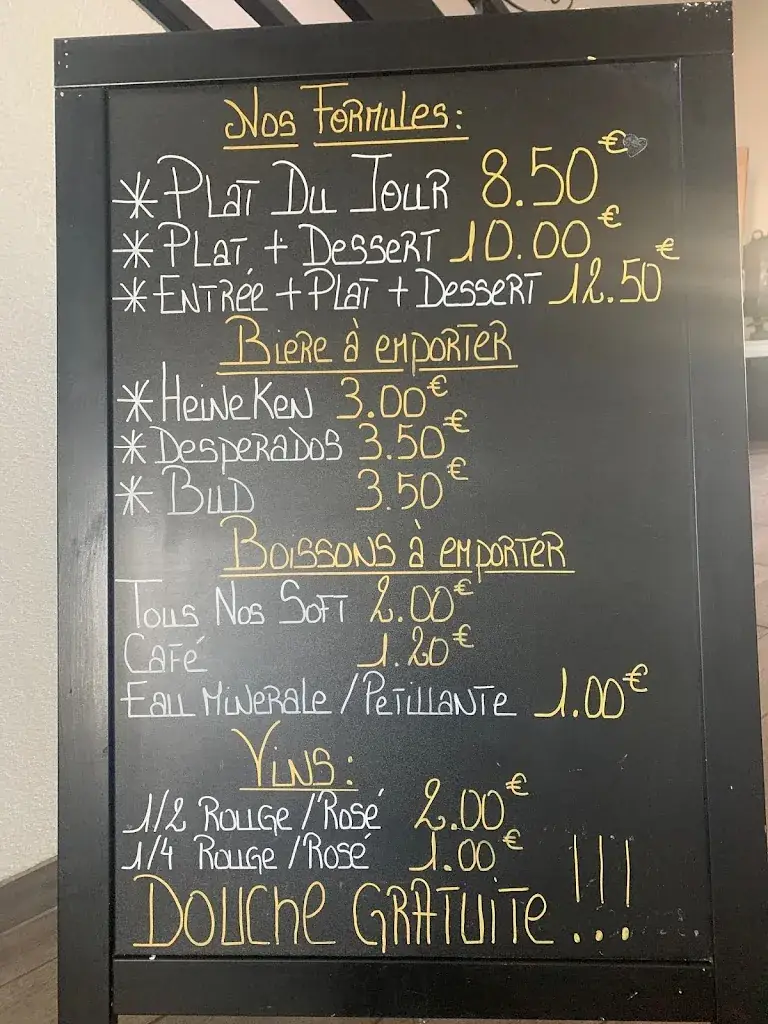 Nos Formules:
* Plat Du Jour 8.50€
* Plat + Dessert 10.00€
* Entrée + Plat + Dessert 12.50€
Biere à emporter
* Heineken 3.00€
* Desperados 3.50€
* Bud 3.50€
Boissons à emporter
Tous Nos Soft 2.00€
Café 1.20€
Eau Minerale / Petillante 1.00€
Vins:
1/2 Rouge / Rosé 2.00€
1/4 Rouge / Rosé 1.00€
Douche Gratuite !!!